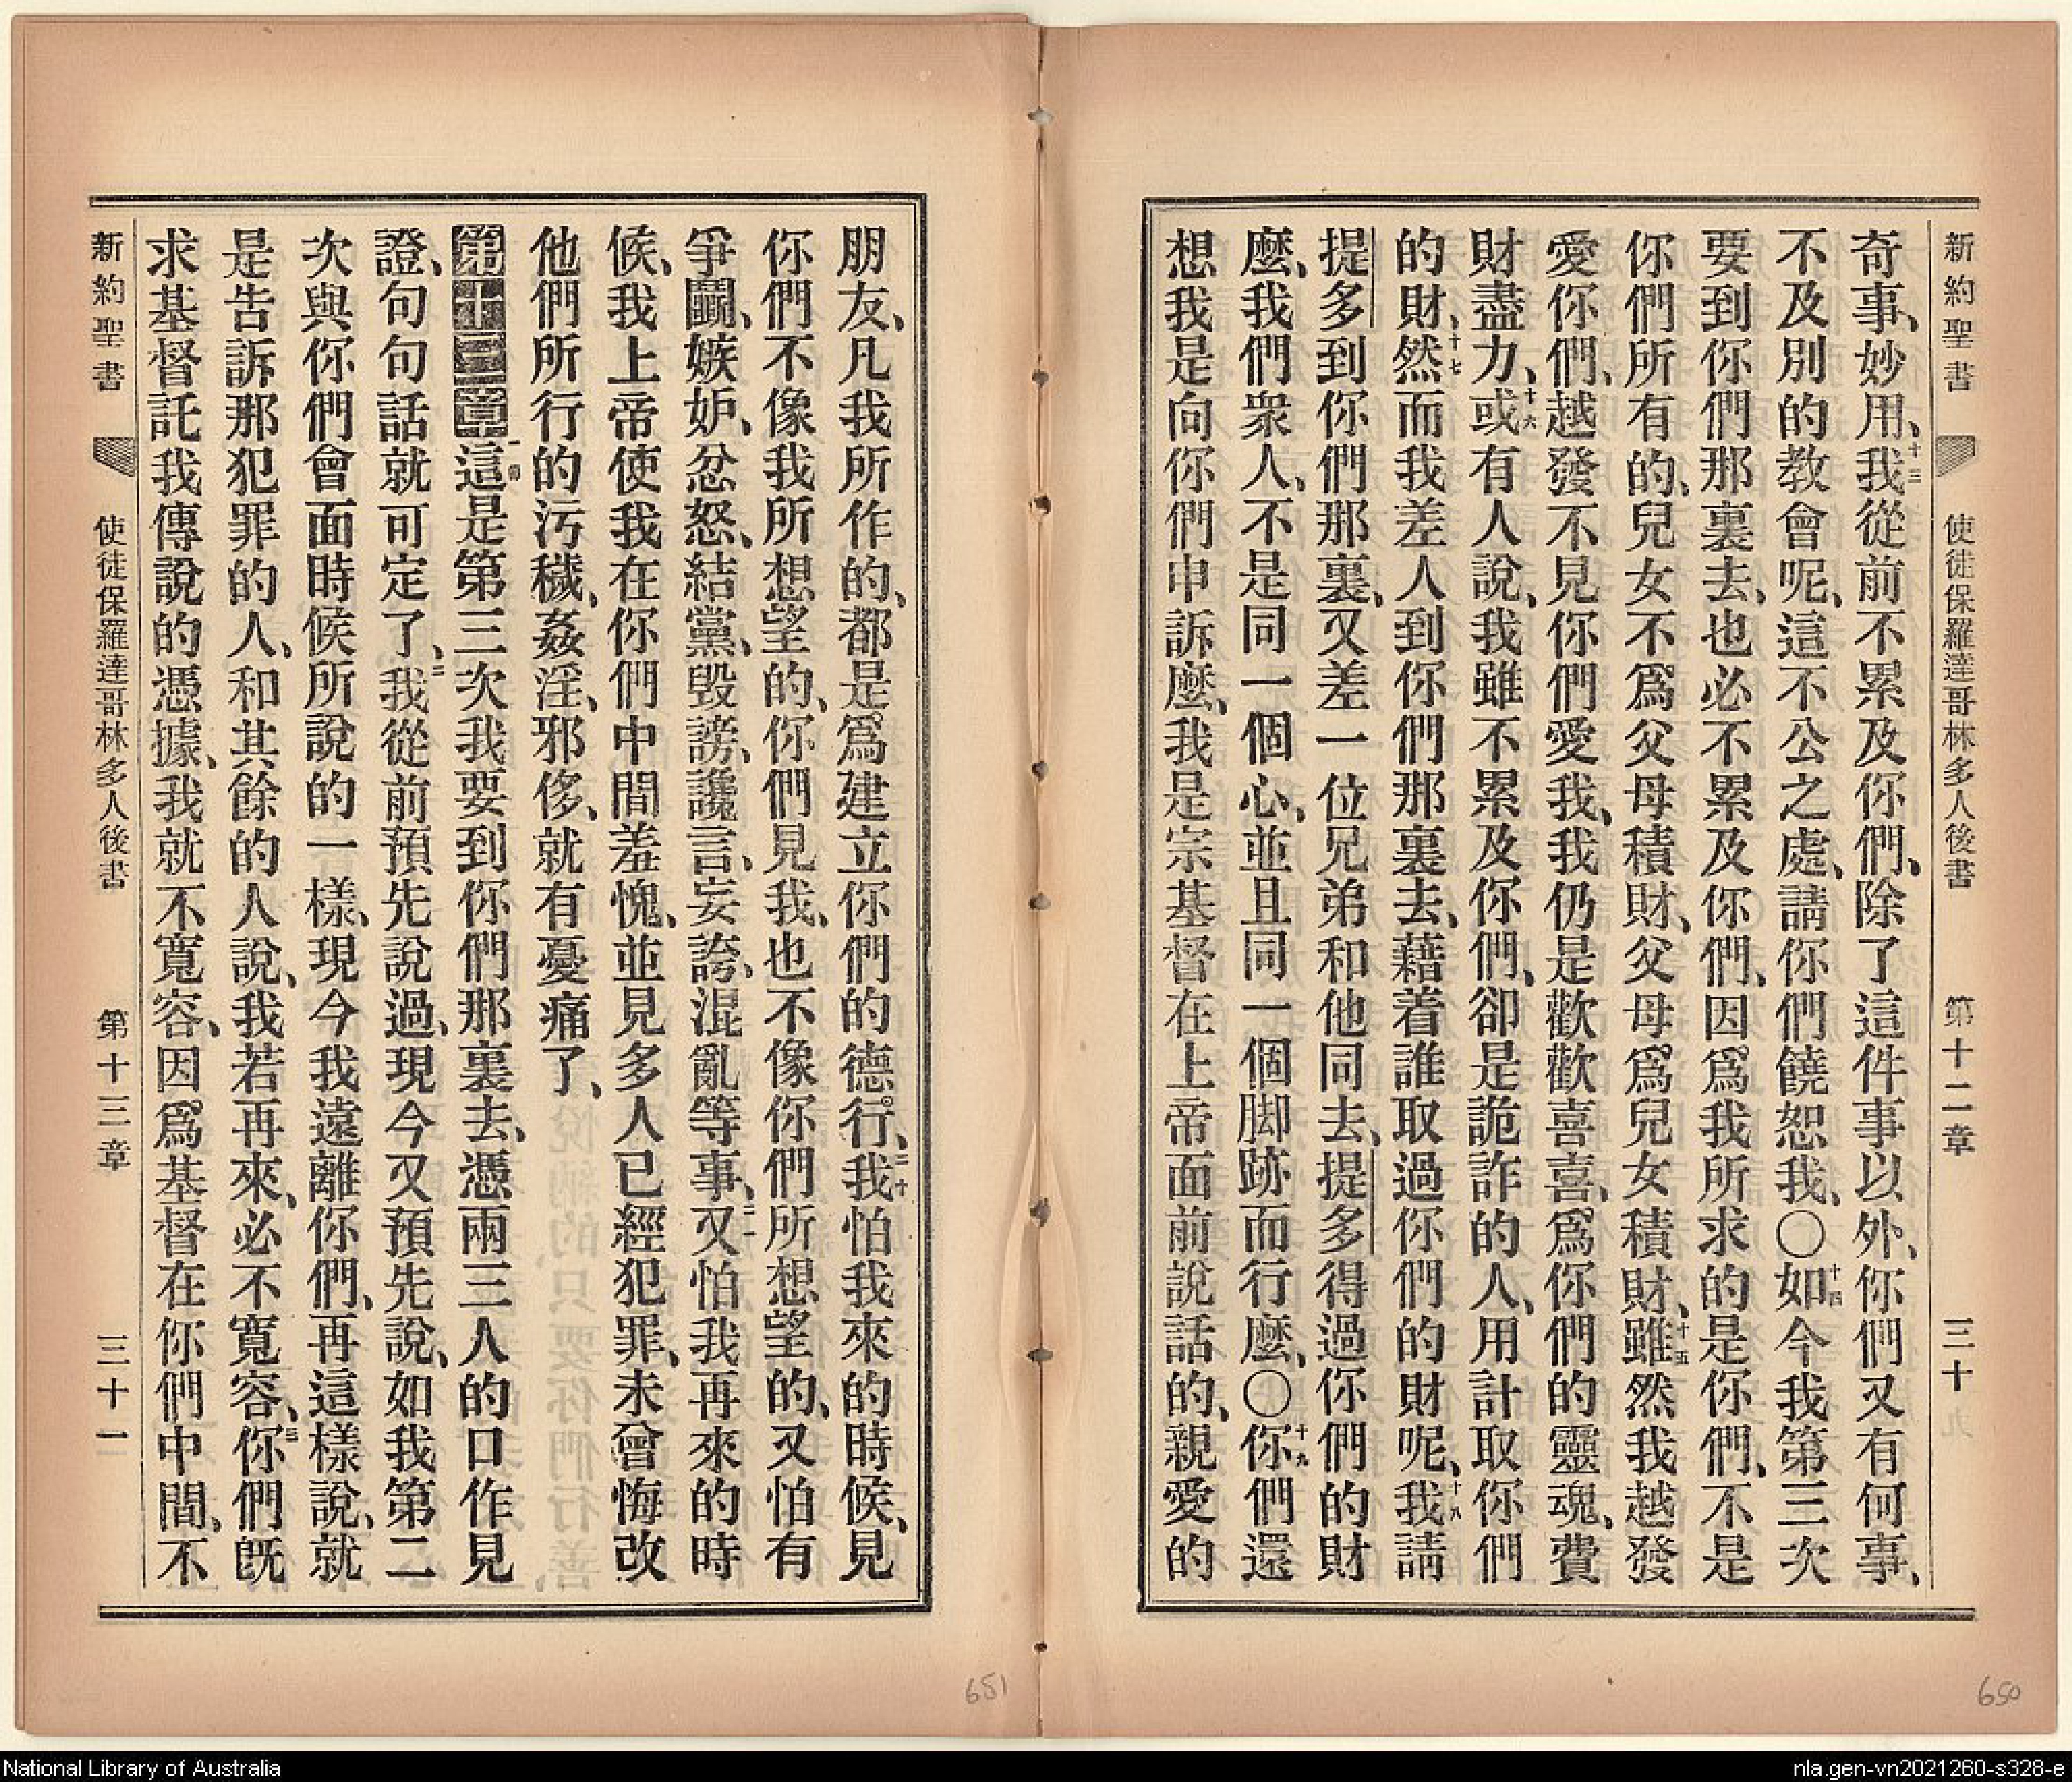 新約聖書 使徒保羅達哥林多人後書 第十二章 三十
奇事、妙用、十三我從前不累及你們、除了這件事以外、你們又有何事、
不及別的教會呢、這不公之處、請你們饒恕我、〇十四如今我第三次
要到你們那裏去、也必不累及你們、因爲我所求的是你們、不是
你們所有的、兒女不爲父母積財、父母爲兒女積財、十五雖然我越發
愛你們、越發不見你們愛我、我仍是歡歡喜喜、爲你們的靈魂、費
財盡力、十六或有人說、我雖不累及你們、卻是詭詐的人、用計取你們
的財、十七然而我差人到你們那裏去、藉着誰取過你們的財呢、十八我請
提多到你們那裏、又差一位兄弟和他同去、提多得過你們的財
麽、我們衆人、不是同一個心、並且同一個脚跡而行麽、〇十九你們還
想我是向你們申訴麽、我是宗基督在上帝面前說話的、親愛的
朋友、凡我所作的、都是爲建立你們的德行、二十我怕我來的時候、見
你們不像我所想望的、你們見我、也不像你們所想望的、又怕有
爭鬭、嫉妒、忿怒、結黨、毀謗、讒言、妄誇、混亂等事、二一又怕我再來的時
候、我上帝使我在你們中間羞愧、並見多人已經犯罪、未曾悔改
他們所行的污穢、姦淫、邪侈、就有憂痛了、
第十三章一節這是第三次我要到你們那裏去、憑兩三人的口作見
證、句句話就可定了、二我從前預先說過、現今又預先說、如我第二
次與你們會面時候所說的一樣、現今我遠離你們、再這樣說、就
是告訴那犯罪的人、和其餘的人說、我若再來、必不寬容、三你們旣
求基督託我傳說的憑據、我就不寬容、因爲基督在你們中間、不
新約聖書 使徒保羅達哥林多人後書 第十三章 三十一
651
650
National Library of Australia
nla.gen-vn2021260-s328-e